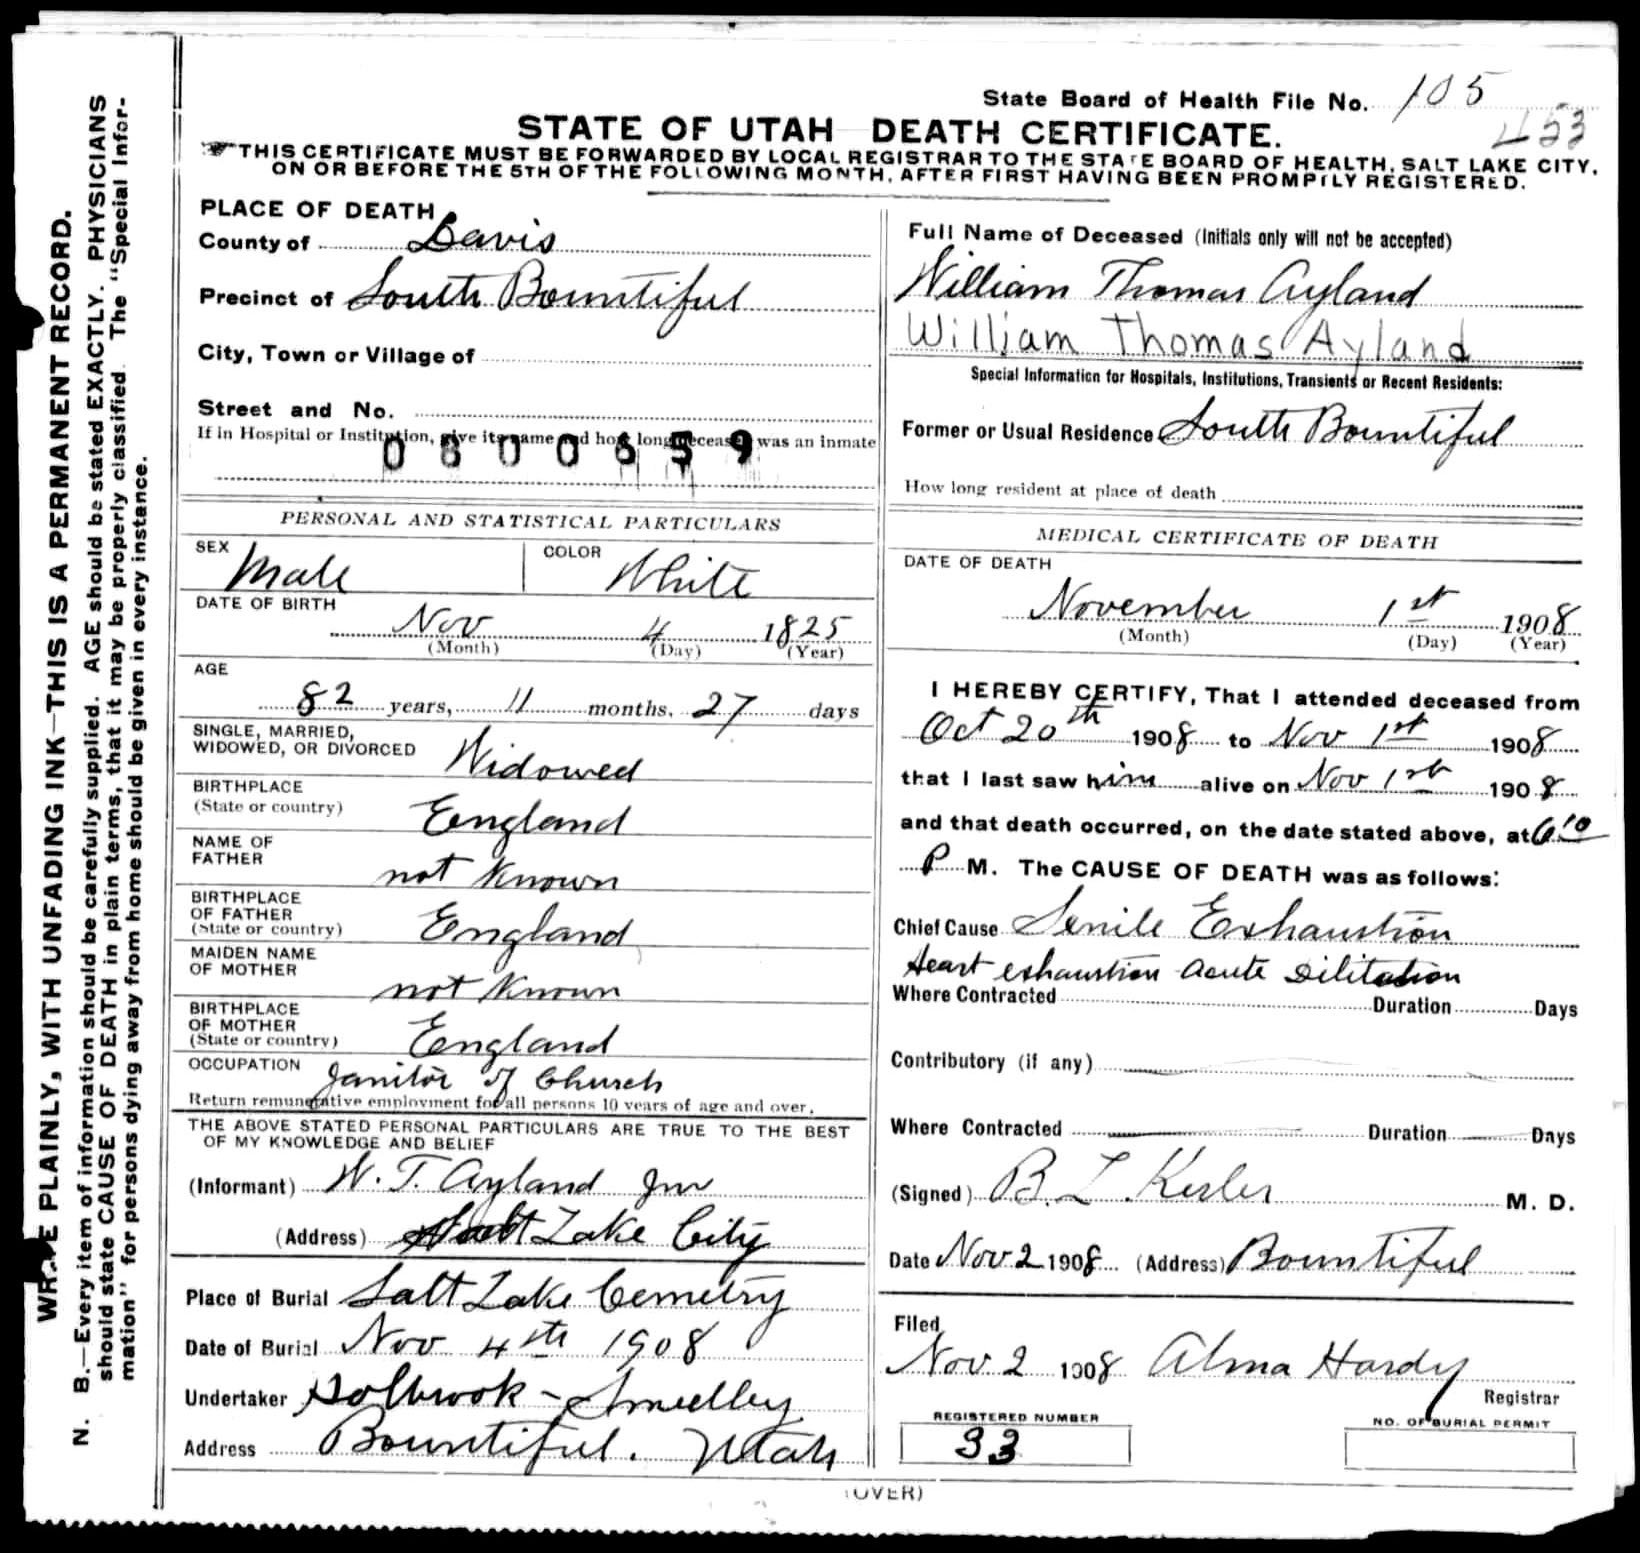 State Board of Health File No. 105
453
STATE OF UTAH DEATH CERTIFICATE.
THIS CERTIFICATE MUST BE FORWARDED BY LOCAL REGISTRAR TO THE STATE BOARD OF HEALTH, SALT LAKE CITY,
ON OR BEFORE THE 5TH OF THE FOLLOWING MONTH, AFTER FIRST HAVING BEEN PROMPTLY REGISTERED.
WRITE PLAINLY, WITH UNFADING INK—THIS IS A PERMANENT RECORD.
N. B.—Every item of information should be carefully supplied. AGE should be stated EXACTLY. PHYSICIANS
should state CAUSE OF DEATH in plain terms, that it may be properly classified. The "Special Infor-
mation" for persons dying away from home should be given in every instance.
PLACE OF DEATH
County of Davis
Precinct of South Bountiful
City, Town or Village of
Street and No.
If in Hospital or Institution, give its name and how long deceased was an inmate
0800659
PERSONAL AND STATISTICAL PARTICULARS
SEX Male COLOR White
DATE OF BIRTH
Nov 4 1825
(Month) (Day) (Year)
AGE
82 years, 11 months, 27 days
SINGLE, MARRIED,
WIDOWED, OR DIVORCED Widowed
BIRTHPLACE
(State or country) England
NAME OF
FATHER not Known
BIRTHPLACE
OF FATHER
(State or country) England
MAIDEN NAME
OF MOTHER not Known
BIRTHPLACE
OF MOTHER
(State or country) England
OCCUPATION Janitor of Church
Return remunerative employment for all persons 10 years of age and over.
THE ABOVE STATED PERSONAL PARTICULARS ARE TRUE TO THE BEST
OF MY KNOWLEDGE AND BELIEF
(Informant) W. T. Ayland Jnr
(Address) Salt Lake City
Place of Burial Salt Lake Cemetry
Date of Burial Nov 4th 1908
Undertaker Holbrook - Smedley
Address Bountiful. Utah
Full Name of Deceased (Initials only will not be accepted)
William Thomas Ayland
William Thomas Ayland
Special Information for Hospitals, Institutions, Transients or Recent Residents:
Former or Usual Residence South Bountiful
How long resident at place of death
MEDICAL CERTIFICATE OF DEATH
DATE OF DEATH
November 1st 1908
(Month) (Day) (Year)
I HEREBY CERTIFY, That I attended deceased from
Oct 20th 1908 to Nov 1st 1908
that I last saw him alive on Nov 1st 1908
and that death occurred, on the date stated above, at 6:10
P M. The CAUSE OF DEATH was as follows:
Chief Cause Senile Exhaustion
Heart exhaustion acute Dilitation
Where Contracted Duration Days
Contributory (if any)
Where Contracted Duration Days
(Signed) B. L. Kesler M. D.
Date Nov 2 1908 (Address) Bountiful
Filed
Nov 2 1908 Alma Hardy
Registrar
REGISTERED NUMBER
33
NO. OF BURIAL PERMIT
(OVER)